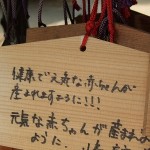 健康で元気な赤ちゃんが
産まれますように!!!
元気な赤ちゃんが産まれま
ように.